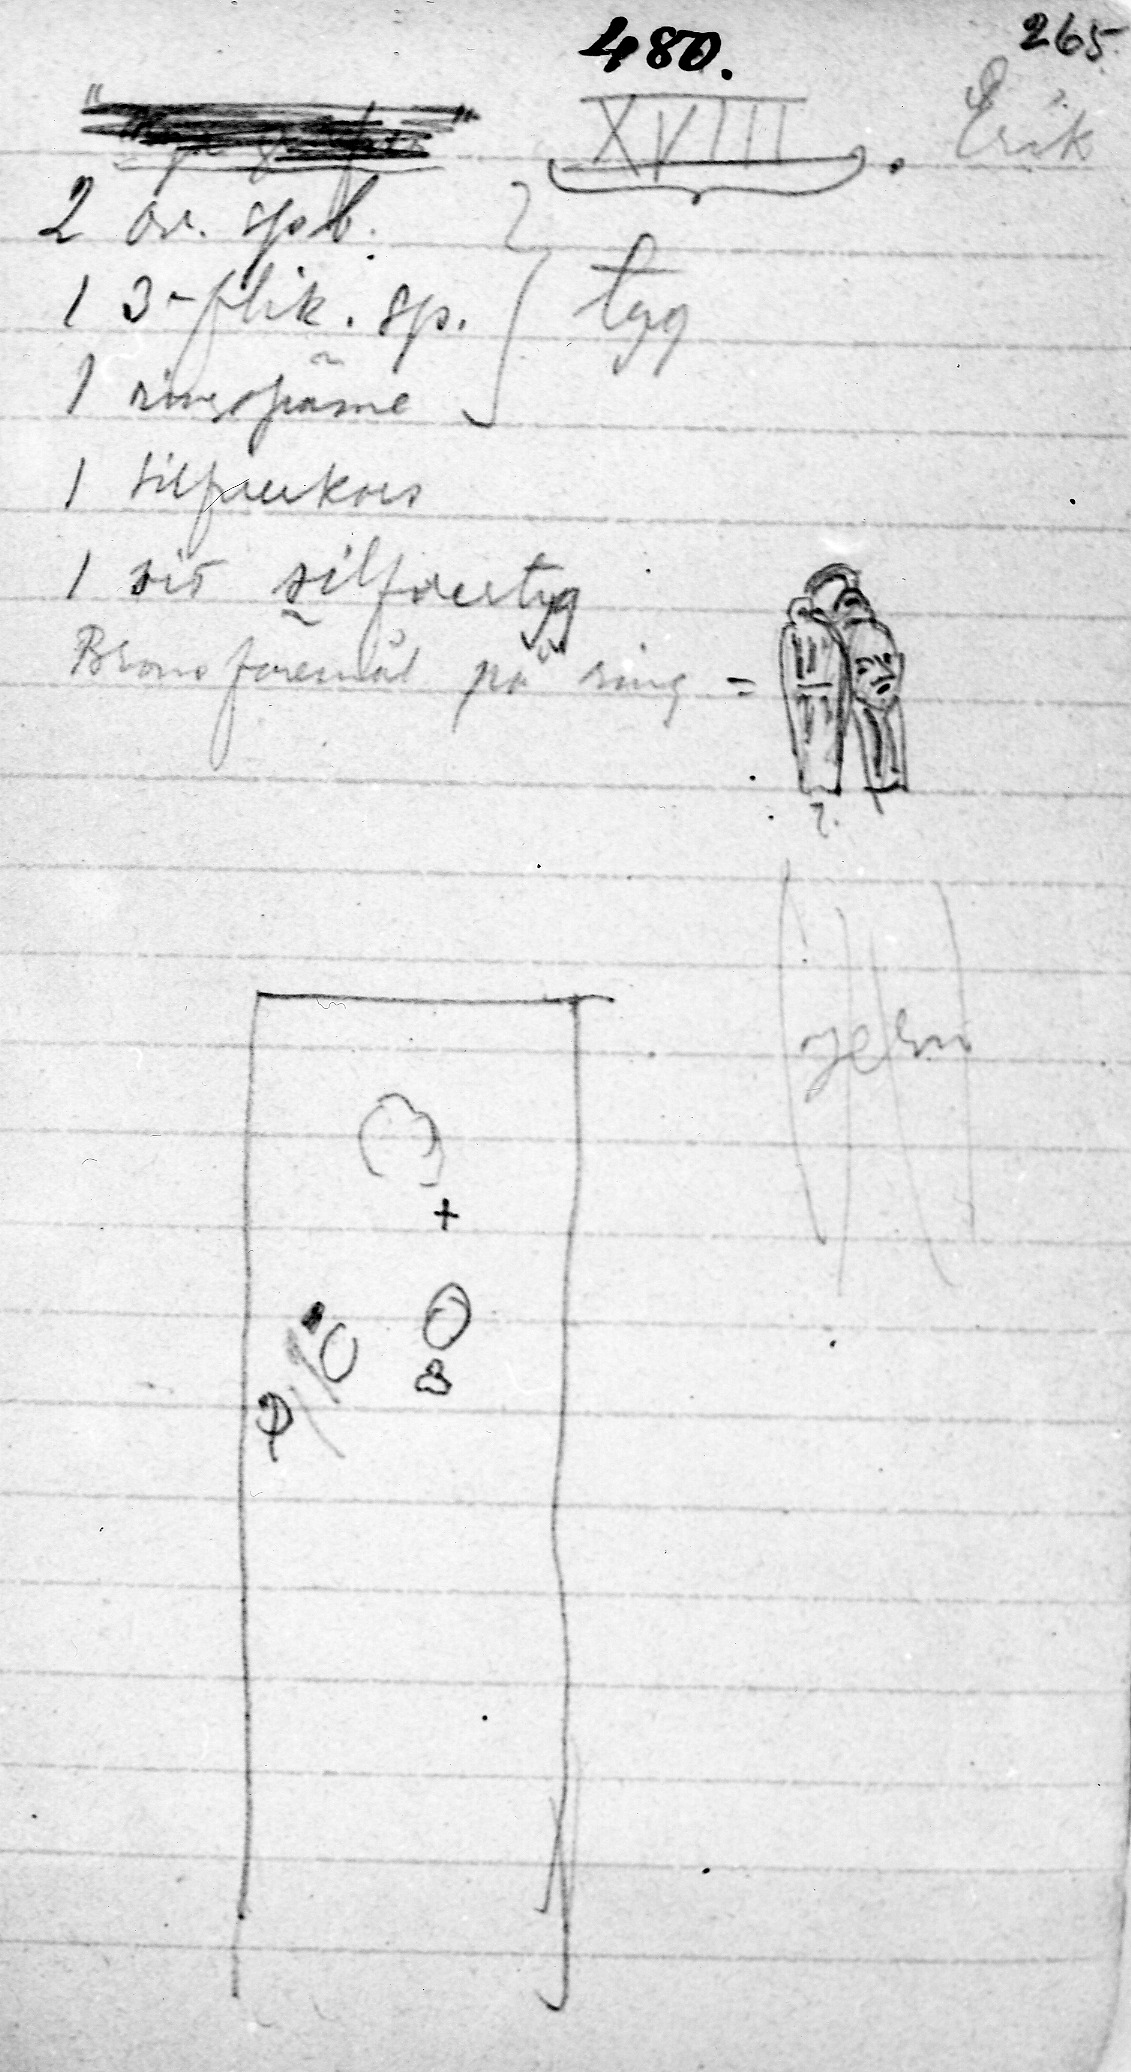 480.
265
XVIII. Erik
2 ov. spb.
1 3-flik. sp. } tyg
1 ringspänne
1 silfverkors
1 silfvertyg
Bronsföremål på ring =
?.
jern